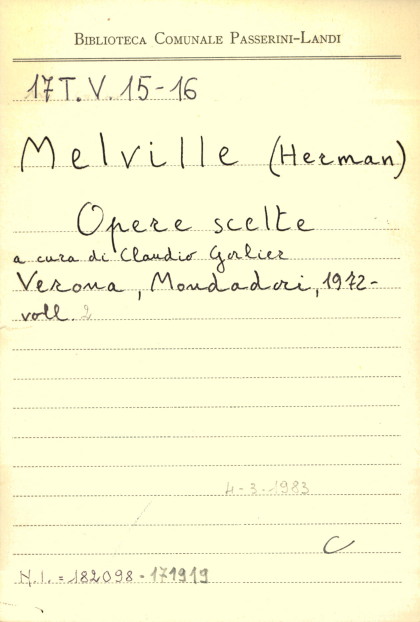 BIBLIOTECA COMUNALE PASSERINI-LANDI
17 T. V. 15-16
Melville (Herman)
Opere scelte
a cura di Claudio Gorlier
Verona, Mondadori, 1972-
voll. 2
4-3-1983
C
N.I. = 182098-171919